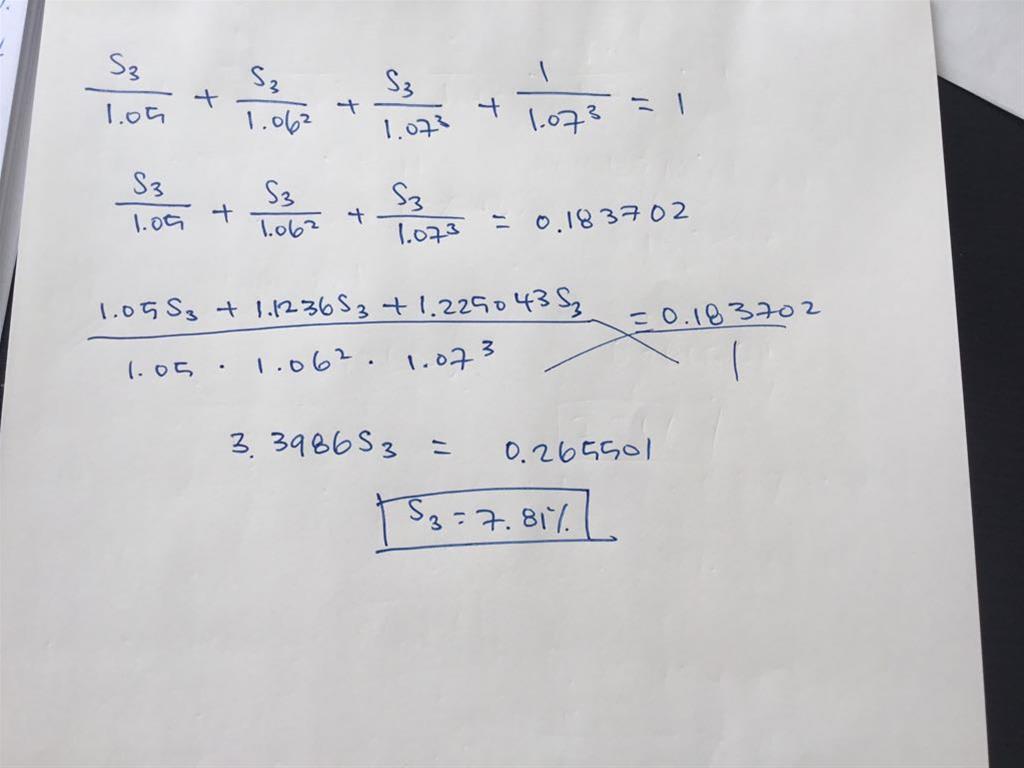 S₃/1.05 + S₃/1.06² + S₃/1.07³ + 1/1.07³ = 1
S₃/1.05 + S₃/1.06² + S₃/1.07³ = 0.183702
(1.05S₃ + 1.1236S₃ + 1.225043S₃)/(1.05 · 1.06² · 1.07³) = 0.183702/1
3.3986S₃ = 0.265501
S₃ = 7.81%